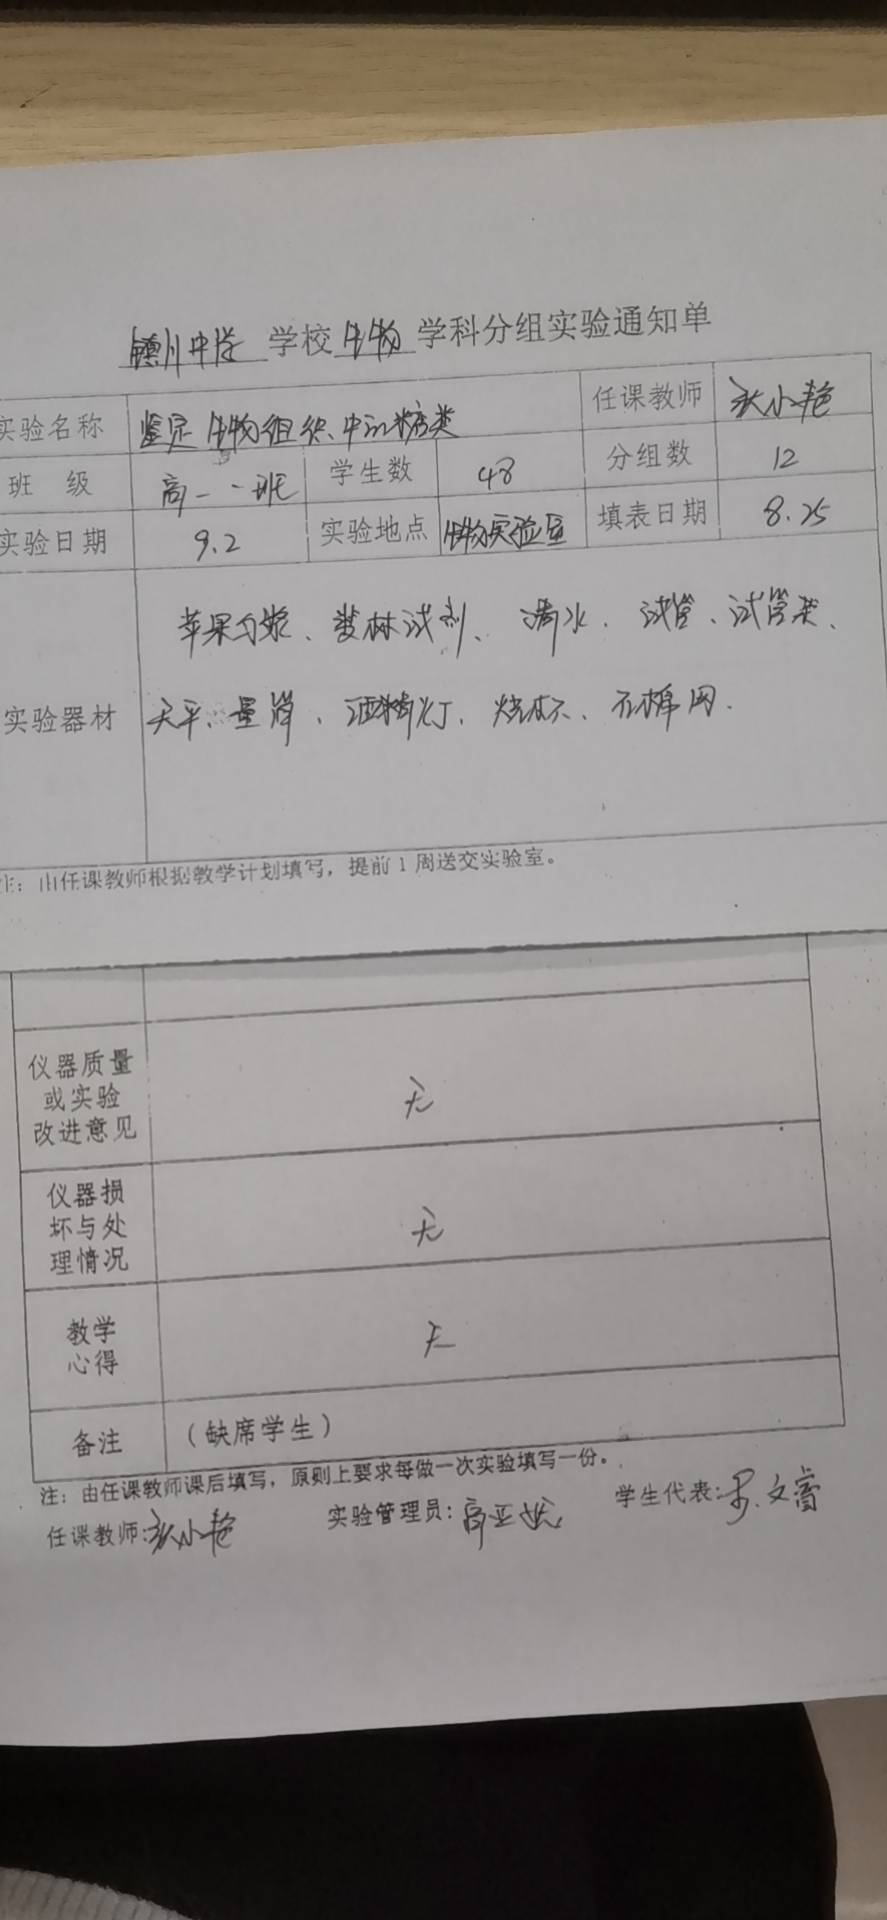 镇川中学 学校 生物 学科分组实验通知单
实验名称 鉴定生物组织中的糖类 任课教师 小艳
班 级 高一·一班 学生数 48 分组数 12
实验日期 9.2 实验地点 生物实验室 填表日期 8.25
苹果匀浆、斐林试剂、清水、试管、试管架、
实验器材 天平、量筒、酒精灯、烧杯、石棉网.
注：由任课教师根据教学计划填写，提前1周送交实验室。
仪器质量
或实验
改进意见
无
仪器损
坏与处
理情况
无
教学
心得
无
备注 （缺席学生）
注：由任课教师课后填写，原则上要求每做一次实验填写一份。
任课教师: 小艳 实验管理员: 高亚 学生代表: 文睿